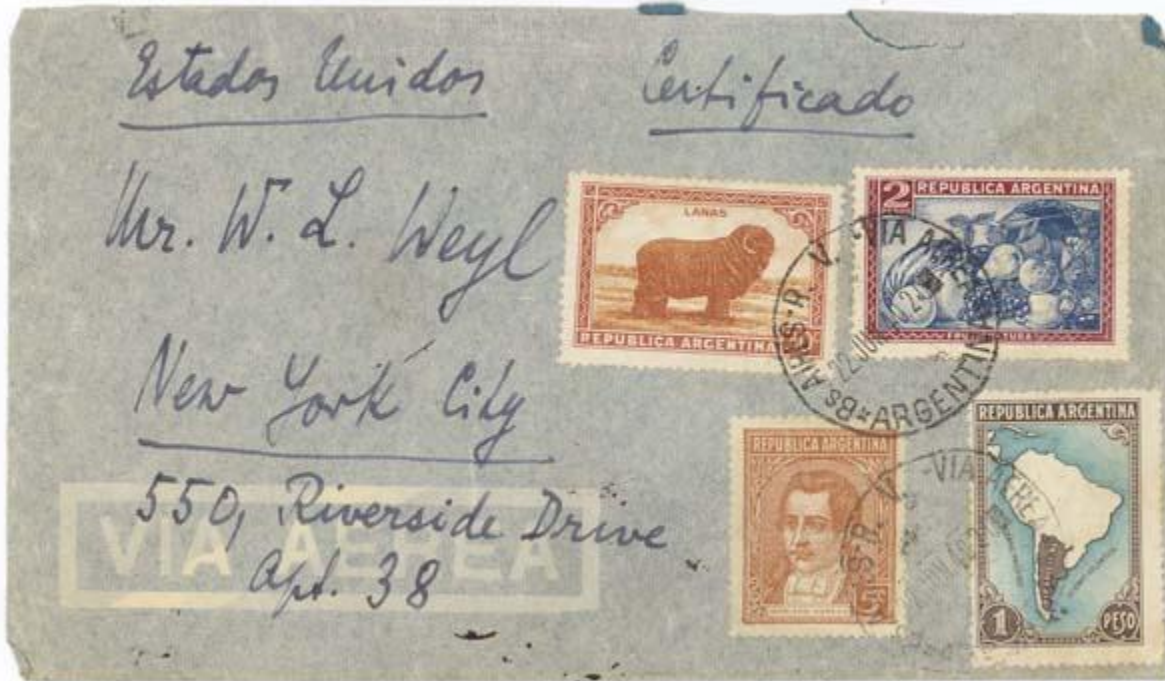 Estados Unidos
Certificado
Mr. W. L. Weyl
New York City
550, Riverside Drive
Apt. 38
VIA AEREA
LANAS
REPUBLICA ARGENTINA
2
REPUBLICA ARGENTINA
FRUTICULTURA
Bs AIRES-R. V. -VIA AEREA
22 JUN
ARGENTINA
REPUBLICA ARGENTINA
5
REPUBLICA ARGENTINA
1 PESO
R. V. -VIA AEREA